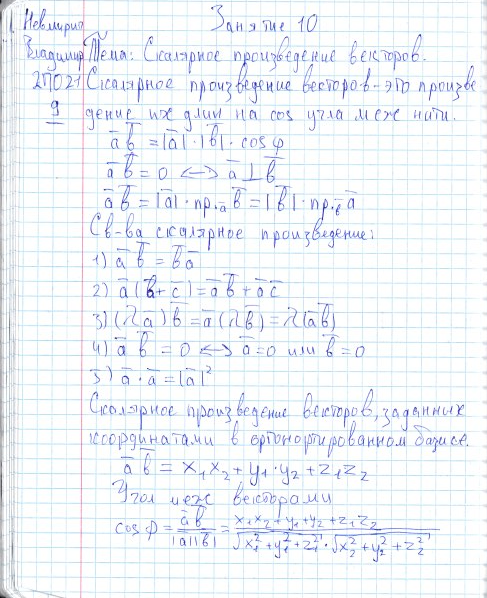 Занятие 10
Невмирич
Владимир Тема: Скалярное произведение векторов.
2ПО21 Скалярное произведение векторов - это произве
9 дение их длин на cos угла меж ними.
a̅ b̅ = |a̅| · |b̅| · cos φ
a̅ b̅ = 0 <-> a̅ ⊥ b̅
a̅ b̅ = |a̅| · пр.a̅ b̅ = |b̅| · пр.b̅ a̅
Св-ва скалярное произведение:
1) a̅ b̅ = b̅ a̅
2) a̅ (b̅ + c̅) = a̅ b̅ + a̅ c̅
3) (λ a̅) b̅ = a̅ (λ b̅) = λ (a̅ b̅)
4) a̅ b̅ = 0 <-> a̅ = 0 или b̅ = 0
5) a̅ · a̅ = |a̅|²
Скалярное произведение векторов, заданных
координатами в ортонортированном базисе.
a̅ b̅ = x₁x₂ + y₁·y₂ + z₁z₂
Угол меж векторами
cos φ = a̅ b̅ / |a̅||b̅| = x₁x₂ + y₁+y₂ + z₁z₂ / √x₁² + y₁² + z₁² · √x₂² + y₂² + z₂²